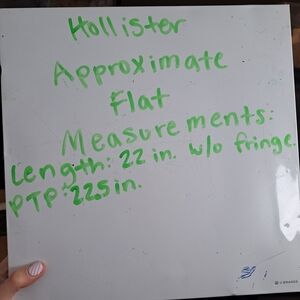 Hollister
Approximate
Flat
Measurements:
Length: 22 in. w/o fringe.
PTP: 22.5 in.